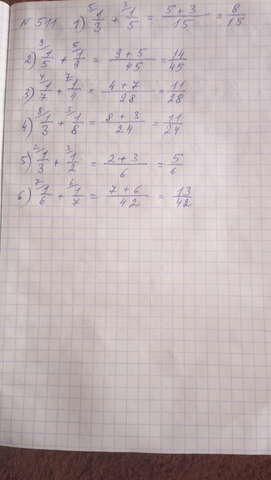 N 511 1) ⁵⁾1/3 + ³⁾1/5 = (5 + 3)/15 = 8/15
2) ⁹⁾1/5 + ⁵⁾1/9 = (9 + 5)/45 = 14/45
3) ⁴⁾1/7 + ⁷⁾1/4 = (4 + 7)/28 = 11/28
4) ⁸⁾1/3 + ³⁾1/8 = (8 + 3)/24 = 11/24
5) ²⁾1/3 + ³⁾1/2 = (2 + 3)/6 = 5/6
6) ⁷⁾1/6 + ⁶⁾1/7 = (7 + 6)/42 = 13/42